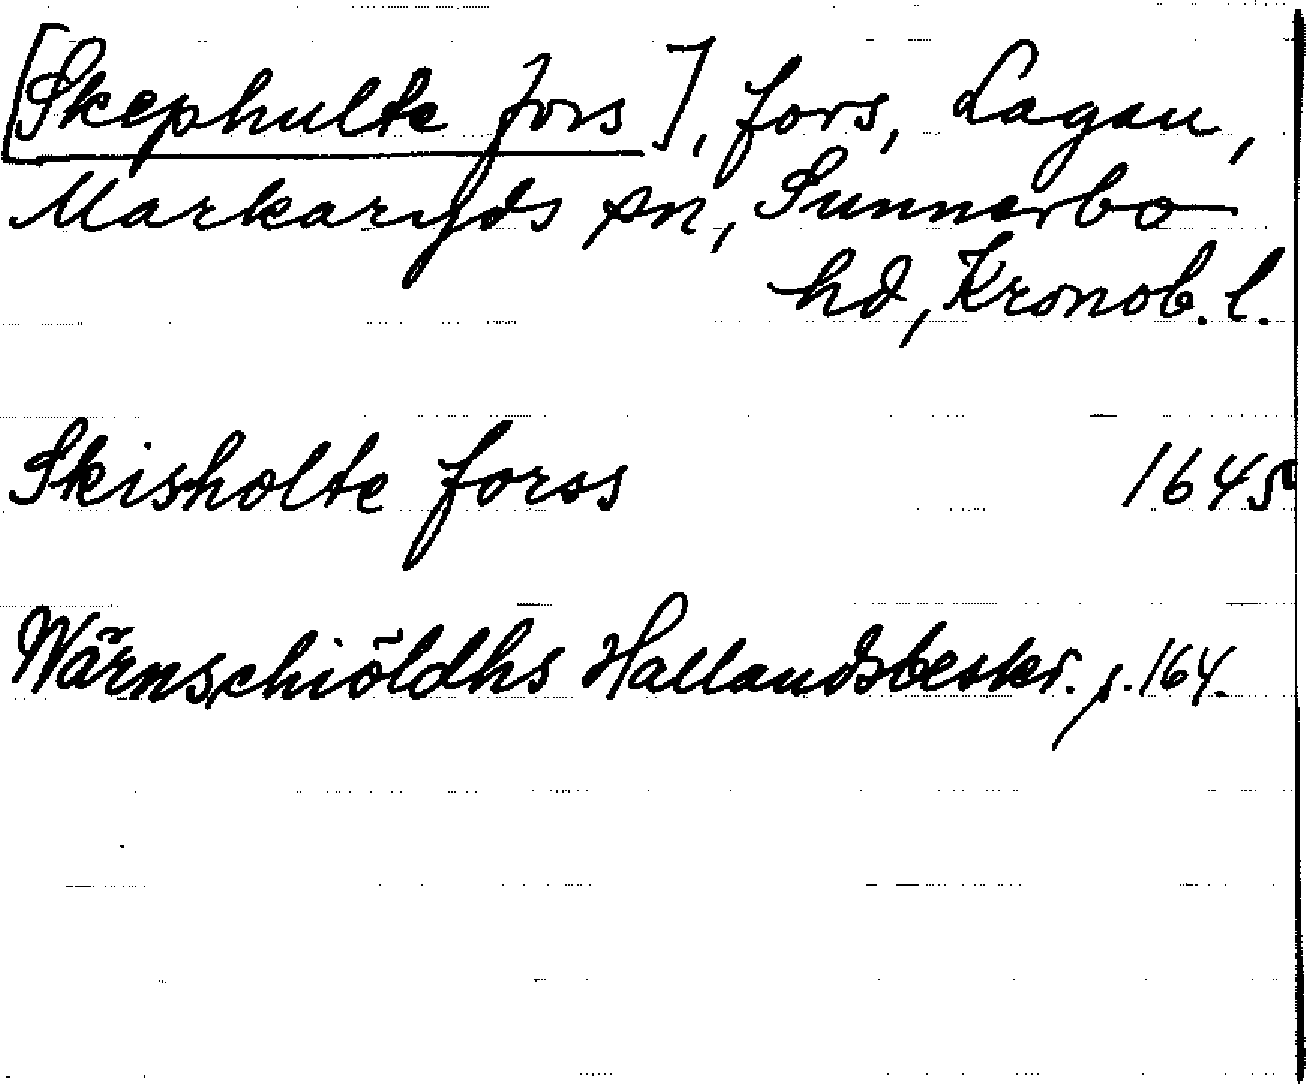 [Skephulte fors], fors, Lagan,
Markaryds sn, Sunnerbo
hd, Kronob. l.
Skisholte forss 1645
Wärnschiöldhs Hallandsbeskr. s. 164.